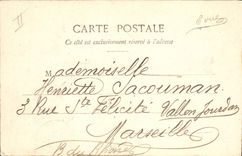 II
CARTE POSTALE
Ce côté est exclusivement réservé à l'adresse
Mademoiselle
Henriette Jacouman
3 Rue Ste Félicité Vallon Jourdan
Marseille
B du Rhône